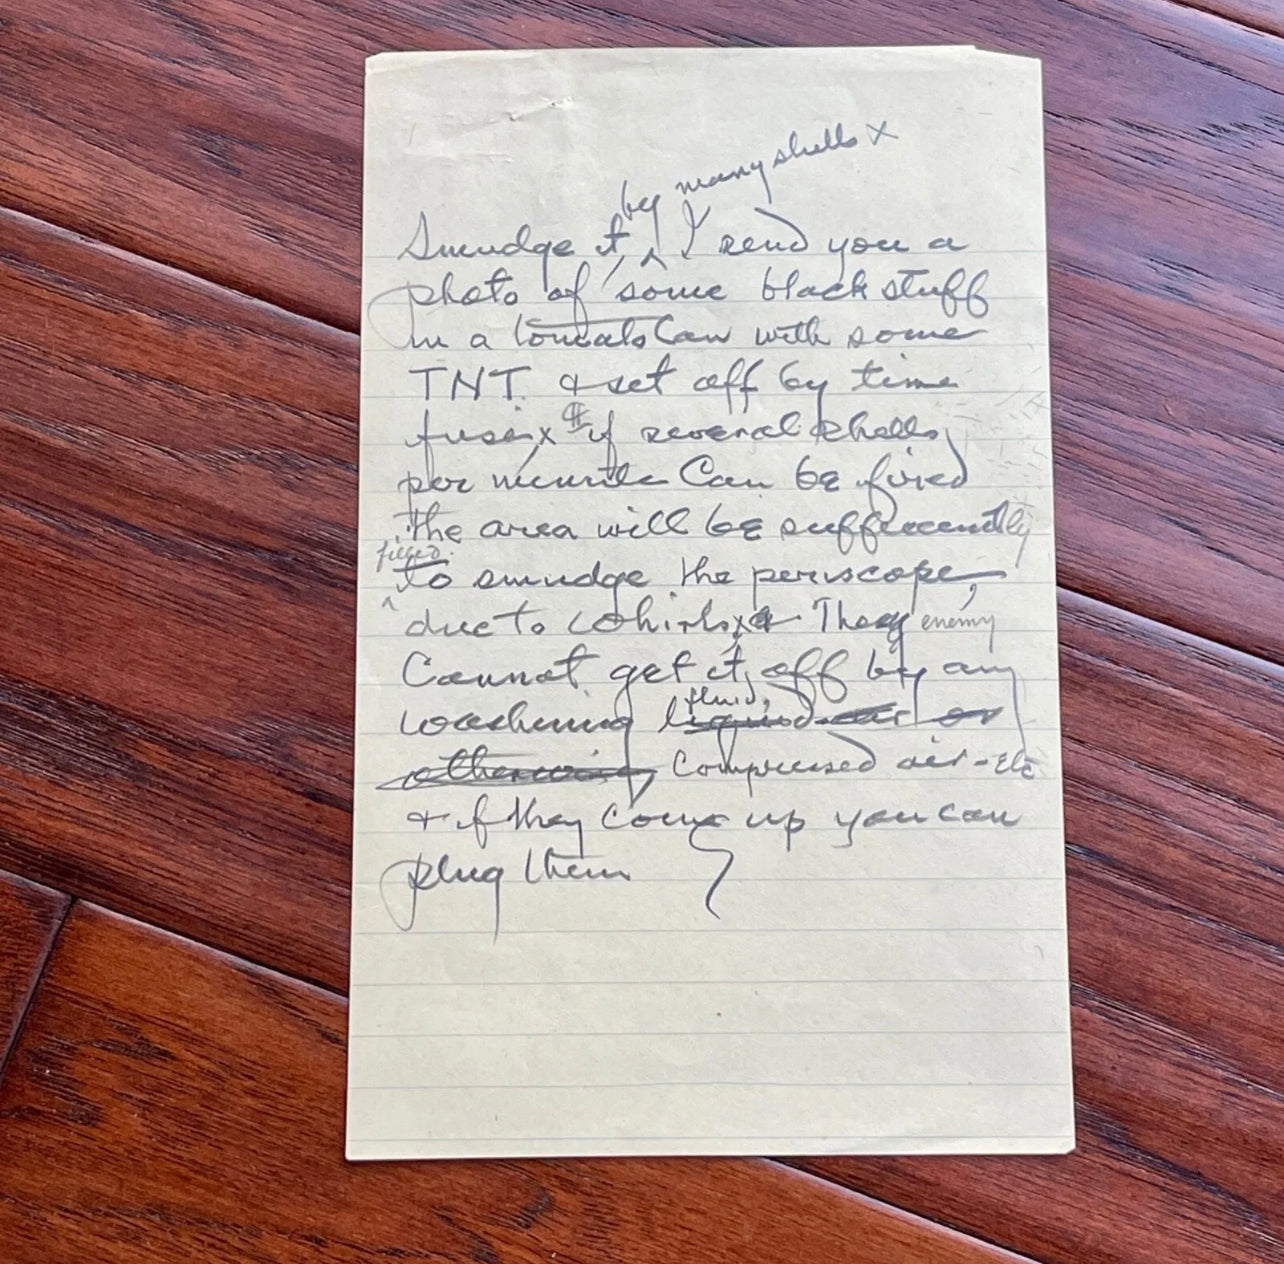 by many shells x
Smudge it, ^ I send you a
photo of some black stuff
in a tomato Can with some
TNT. & set off by time
fuse, x # if several shells
per minute Can be fired
the area will be sufficiently
filled
^ to smudge the periscope,
due to whirls x & They enemy
Cannot get it off by any
fluid,
washing liquid or
otherwise compressed air - Etc
& if they come up you can
plug them